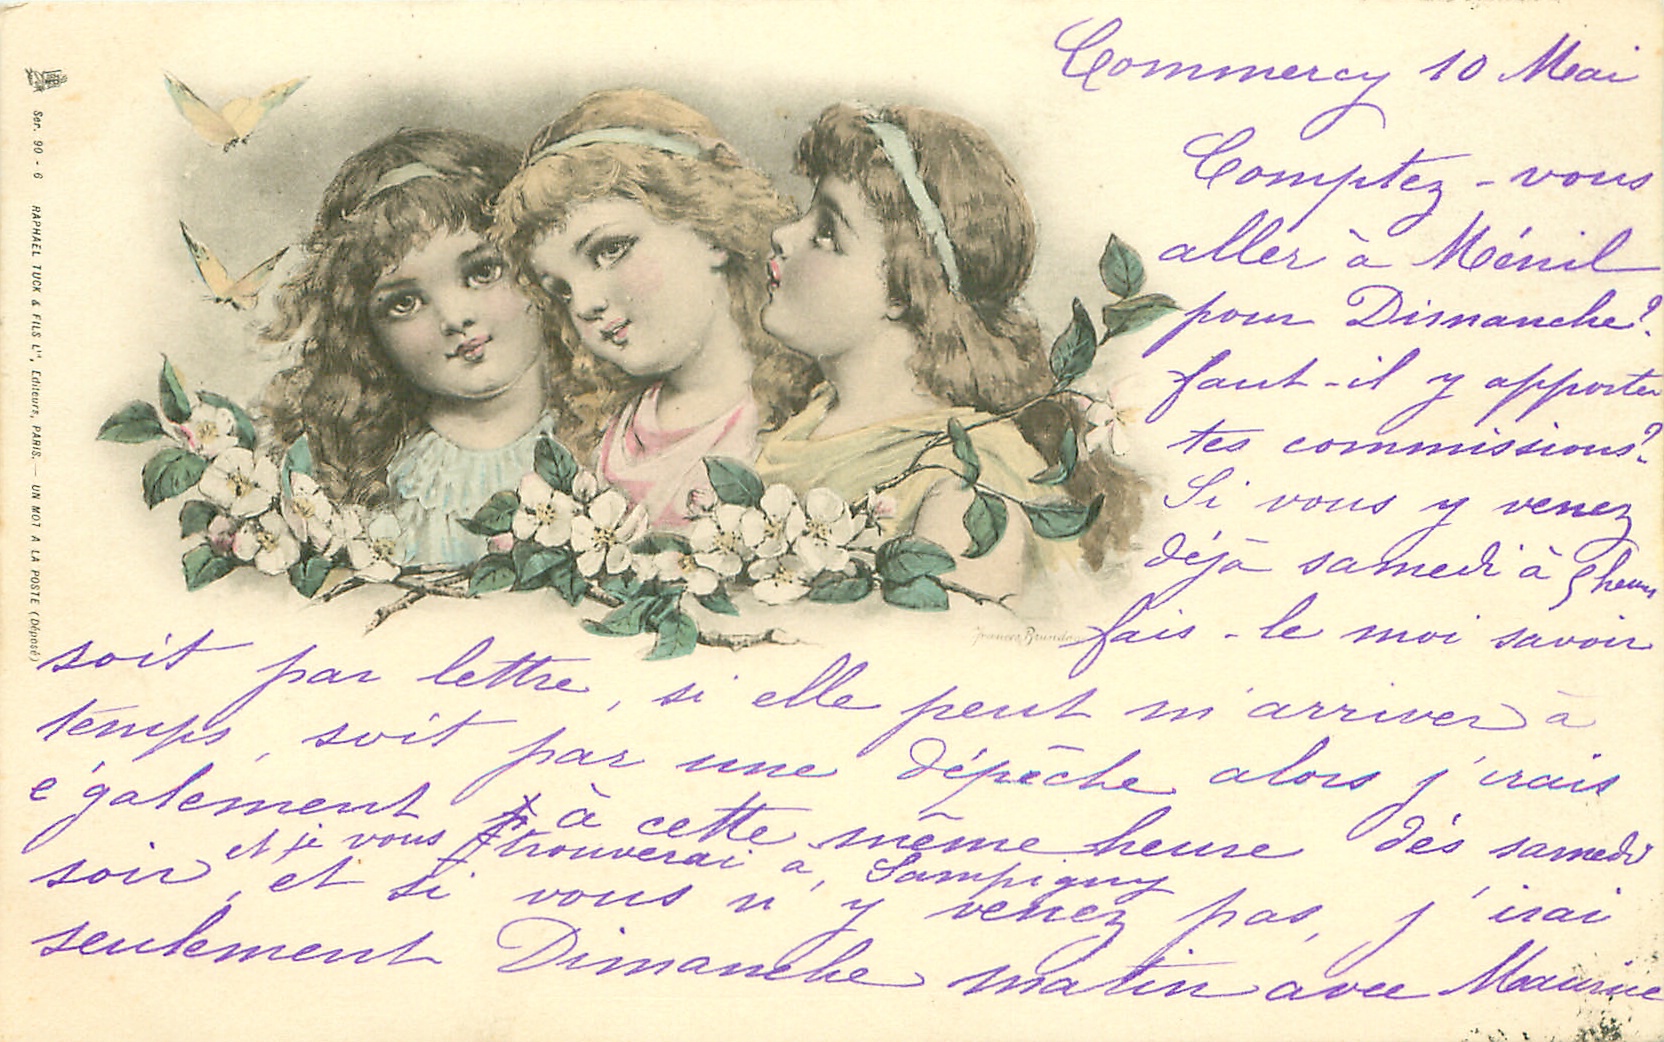 Commercy 10 Mai
Comptez-vous
aller à Ménil
pour Dimanche?
faut-il y apporter
tes commissions?
Si vous y venez
déjà samedi à heures
fais-le moi savoir
soit par lettre, si elle peut m'arriver à
temps, soit par une dépêche alors j'irais
également à cette même heure dès samedi
et je vous trouverai à Sampigny
soir, et si vous n'y venez pas, j'irai
seulement Dimanche matin avec Maurice
Ser. 90 - 6 RAPHAEL TUCK & FILS Lᵈ, Editeurs, PARIS. — UN MOT A LA POSTE (Déposé)
Frances Brundage